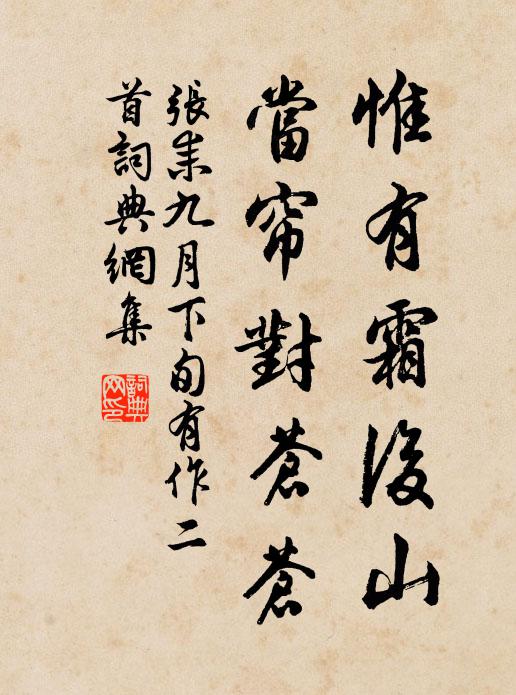 惟有霜後山
當帘對蒼蒼
張耒九月下旬有作二
首詞典網集
詞典
网印